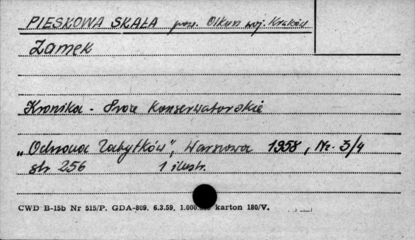 PIESKOWA SKAŁA pow. Olkusz woj. Kraków
Zamek
Kronika - Prace Konserwatorskie
"Ochrona Zabytków" Warszawa 1958, Nr. 3/4
str 256 1 ilustr.
CWD B-15b Nr 515/P. GDA-809. 6.3.59. 1.000. karton 180/V.